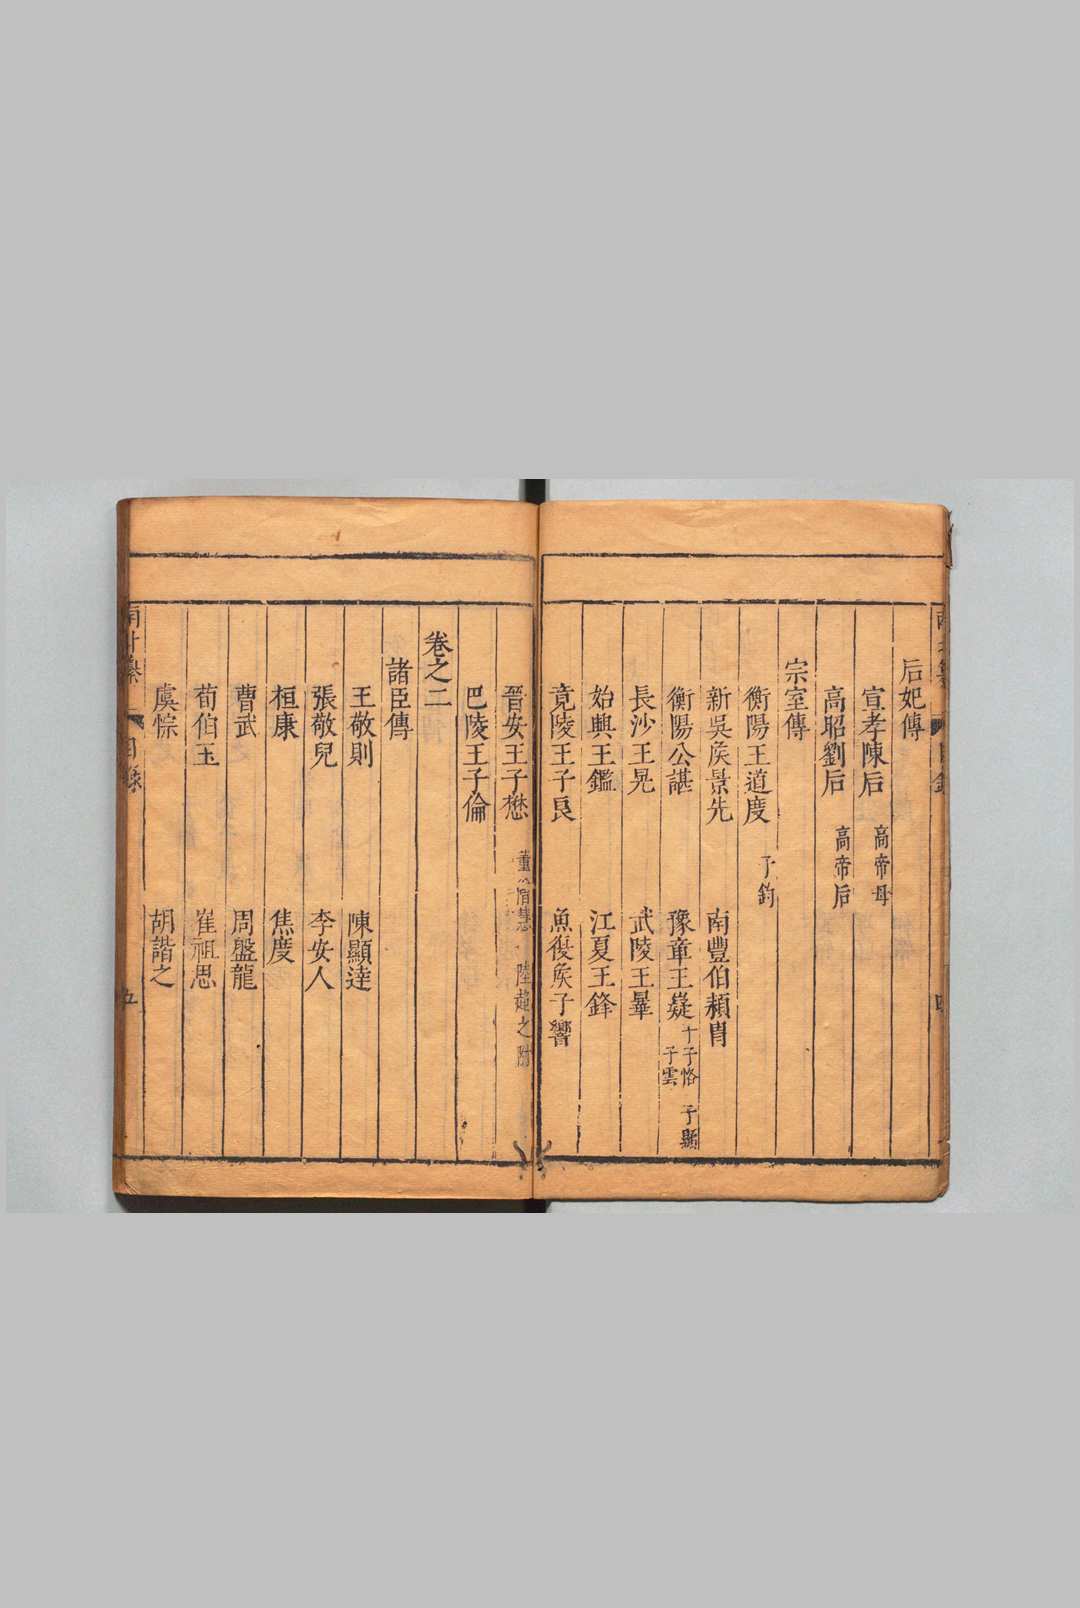 后妃傳
宣孝陳后 高帝母
高昭劉后 高帝后
宗室傳
衡陽王道度 子鈞
新吳矦景先 南豐伯穎胄
衡陽公諶 豫章王嶷 子子恪 子顯 子雲
長沙王晃 武陵王曅
始興王鑑 江夏王鋒
竟陵王子良 魚復矦子響
晉安王子懋 陸超之附
巴陵王子倫
卷之二
諸臣傳
王敬則 陳顯達
張敬兒 李安人
桓康 焦度
曹武 周盤龍
荀伯玉 崔祖思
虞悰 胡諧之
目錄
五